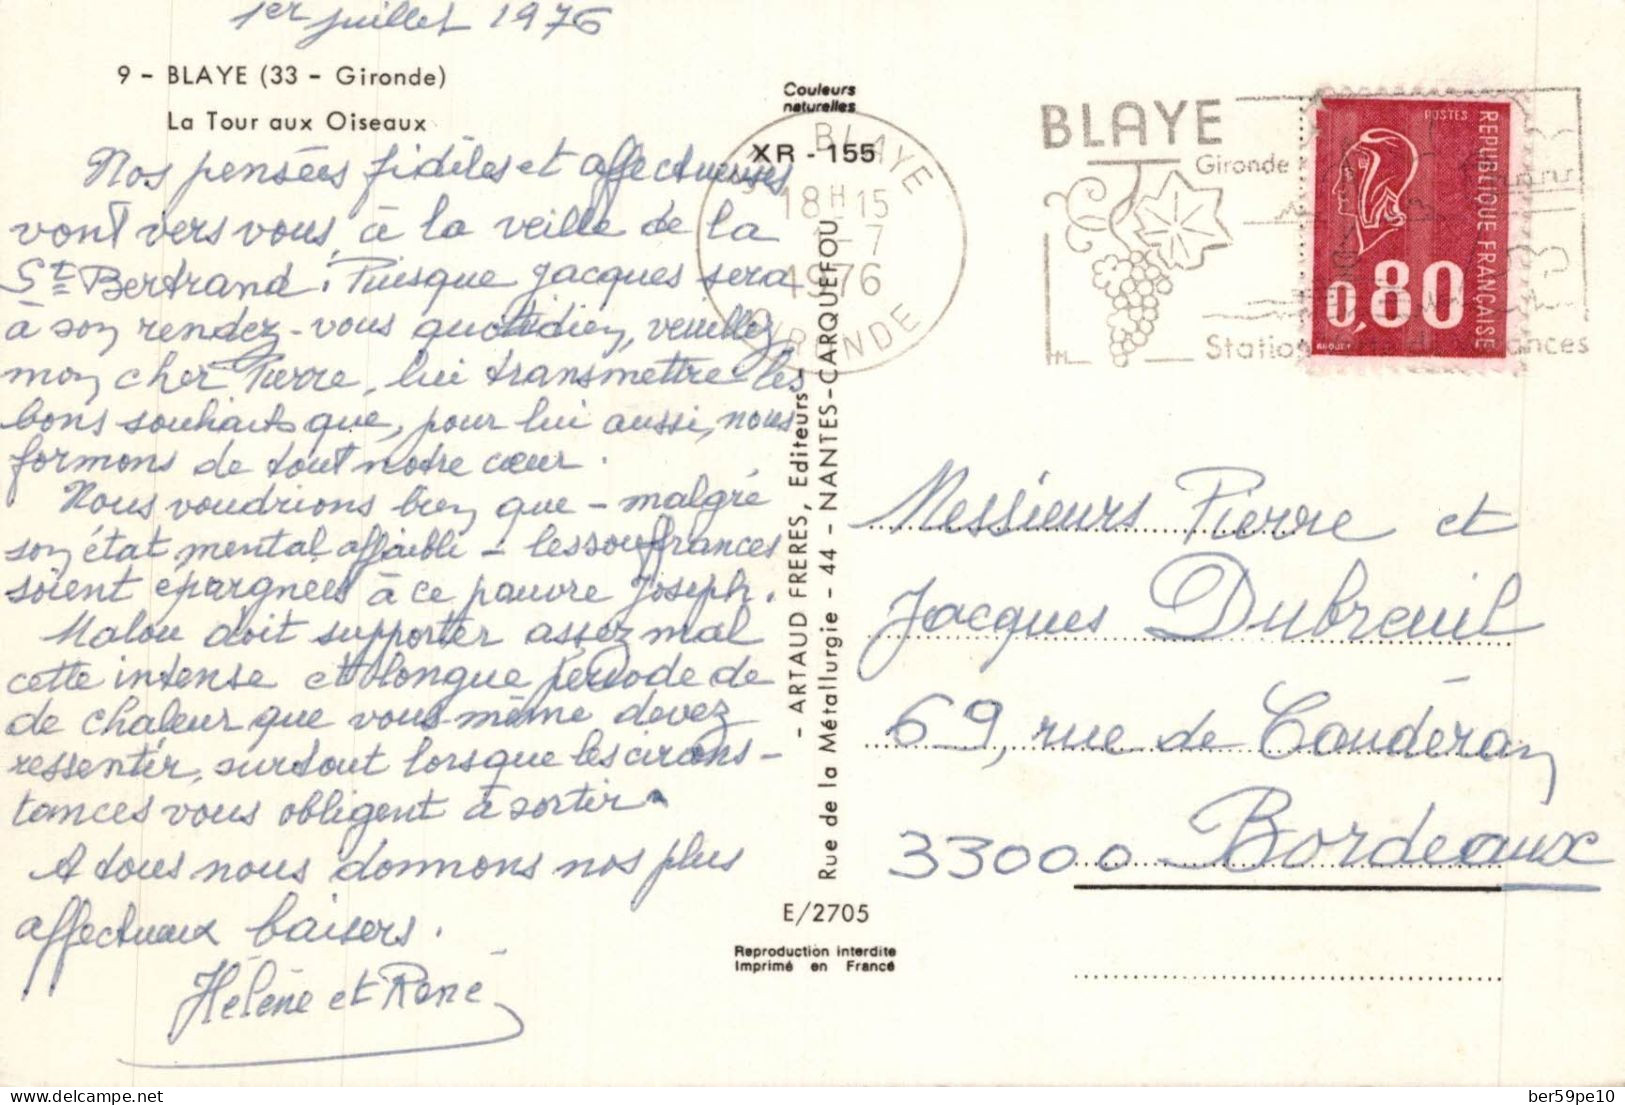 1er juillet 1976
9 - BLAYE (33 - Gironde)
La Tour aux Oiseaux
Nos pensées fidèles et affectueuses
vont vers vous, à la veille de la
St Bertrand. Puisque Jacques sera
à son rendez-vous quotidien, veuillez
mon cher Pierre, lui transmettre les
bons souhaits que, pour lui aussi, nous
formons de tout notre cœur.
Nous voudrions bien que - malgré
son état mental affaibli - les souffrances
soient épargnées à ce pauvre Joseph.
Malou doit supporter assez mal
cette intense et longue période de
de chaleur que vous-même devez
ressentir, surtout lorsque les circons-
tances vous obligent à sortir.
A tous nous donnons nos plus
affectueux baisers.
Hélène et René
Couleurs
naturelles
XR - 155
- ARTAUD FRERES, Editeurs -
Rue de la Métallurgie - 44 - NANTES-CARQUEFOU
E/2705
Reproduction interdite
Imprimé en France
BLAYE
18H15
1-7
1976
GIRONDE
BLAYE
Gironde
Station
ances
POSTES
REPUBLIQUE FRANÇAISE
0,80
Messieurs Pierre et
Jacques Dubreuil
69, rue de Caudéran
33000 Bordeaux
delcampe.net
ber59pe10